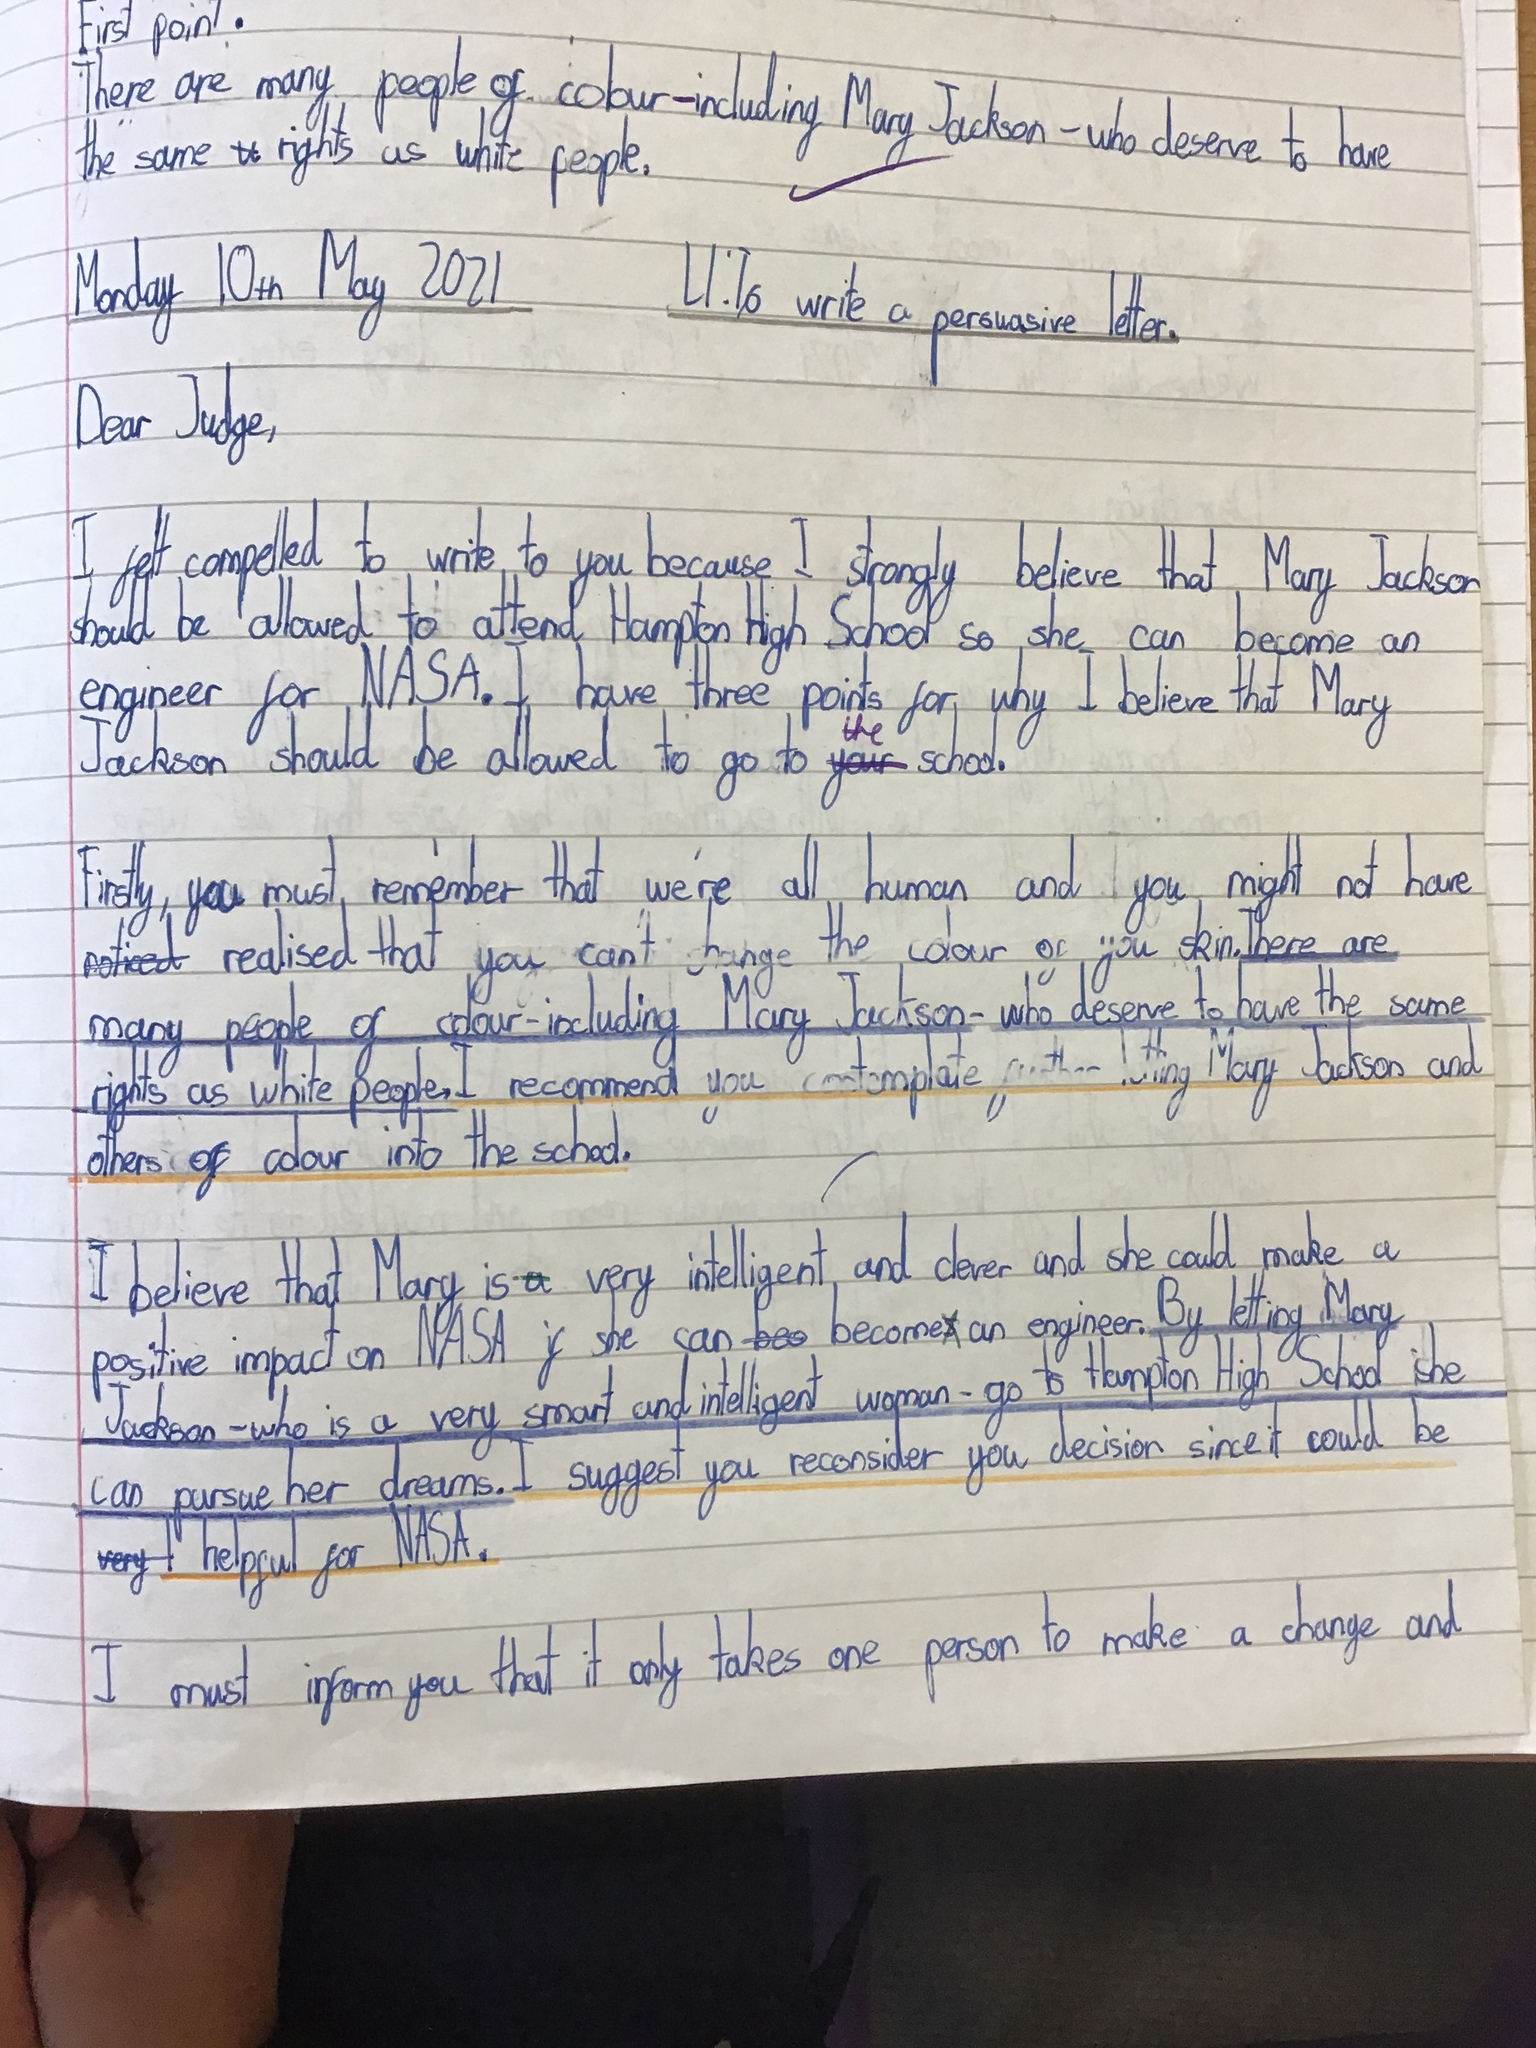 First point.
There are many people of colour-including Mary Jackson-who deserve to have
the same rights as white people.
Monday 10th May 2021 LI:To write a persuasive letter.
Dear Judge,
I felt compelled to write to you because I strongly believe that Mary Jackson
should be allowed to attend Hampton High School so she can become an
engineer for NASA. I have three points for why I believe that Mary
Jackson should be allowed to go to your the school.
Firstly, you must remember that we're all human and you might not have
noticed realised that you can't change the colour of you skin. There are
many people of colour-including Mary Jackson-who deserve to have the same
rights as white people. I recommend you contemplate further letting Mary Jackson and
others of colour into the school.
I believe that Mary is a very intelligent and clever and she could make a
positive impact on NASA if she can beo become an engineer. By letting Mary
Jackson-who is a very smart and intelligent woman-go to Hampton High School she
can pursue her dreams. I suggest you reconsider you decision since it could be
very helpful for NASA.
I must inform you that it only takes one person to make a change and